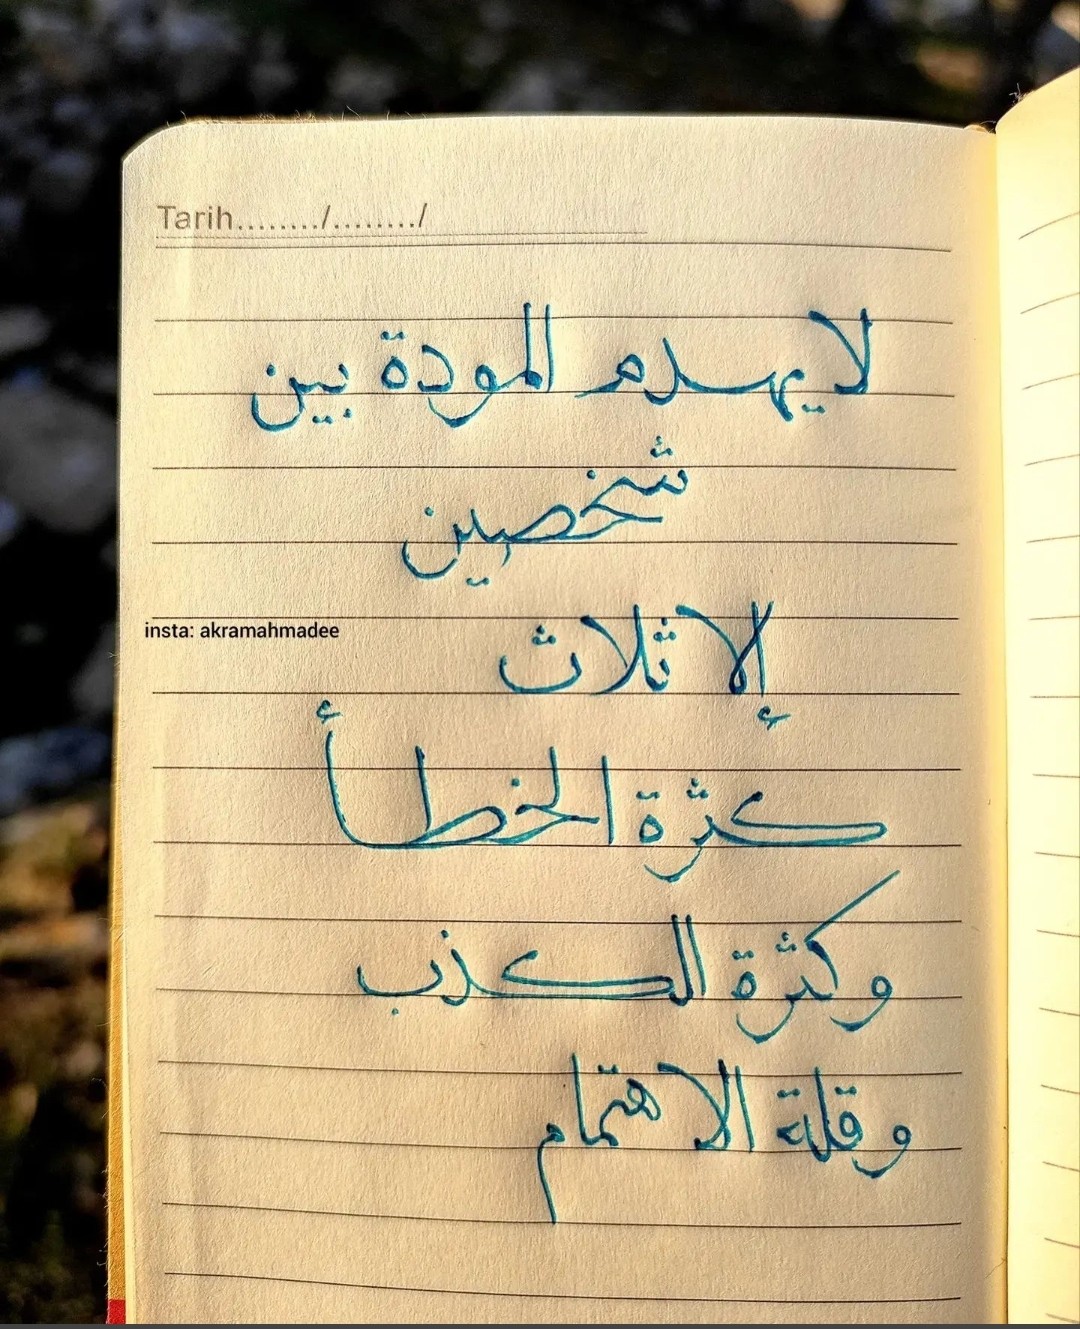 Tarih......../......../
لا يهدم المودة بين
شخصين
insta: akramahmadee
إلا ثلاث
كثرة الخطأ
وكثرة الكذب
وقلة الاهتمام